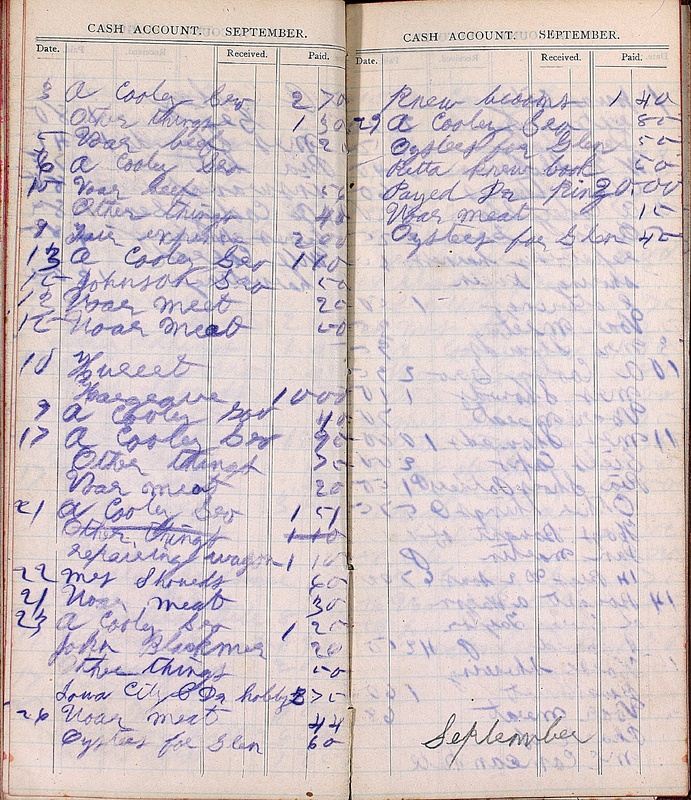 CASH ACCOUNT. SEPTEMBER.
Date. Received. Paid.
3 A Cooley Bro 2 70
Other things 1 30
5 Noar beef 20
6 A Cooley Bro
10 Noar beef 50
Other things 40
9 Fair expence 2 00
13 A Cooley Bro 1 10
15 Johnson Bro 50
12 Noar meet 20
15 Noar meat
10
Hargrave 10 00
9 A Cooley Bro 40
17 A Cooley Bro 90
Other things 30
Noar meat 20
21 A Cooley Bro 1 51
Other things 1 10
repaireing wagon 1 10
22 mrs 60
21 Noar meat 30
23 A Cooley Bro 1 25
John 20
Other things 50
Iowa City
26 Noar meat 44
Oystees for Glen 60
CASH ACCOUNT. SEPTEMBER.
Date. Received. Paid.
Knew brooms 1 40
29 A Cooley Bro 85
Oystees for Glen 50
Retta knew book 50
Payed Dr King 20.00
Noar meat 15
Oystees for Glen 45
September